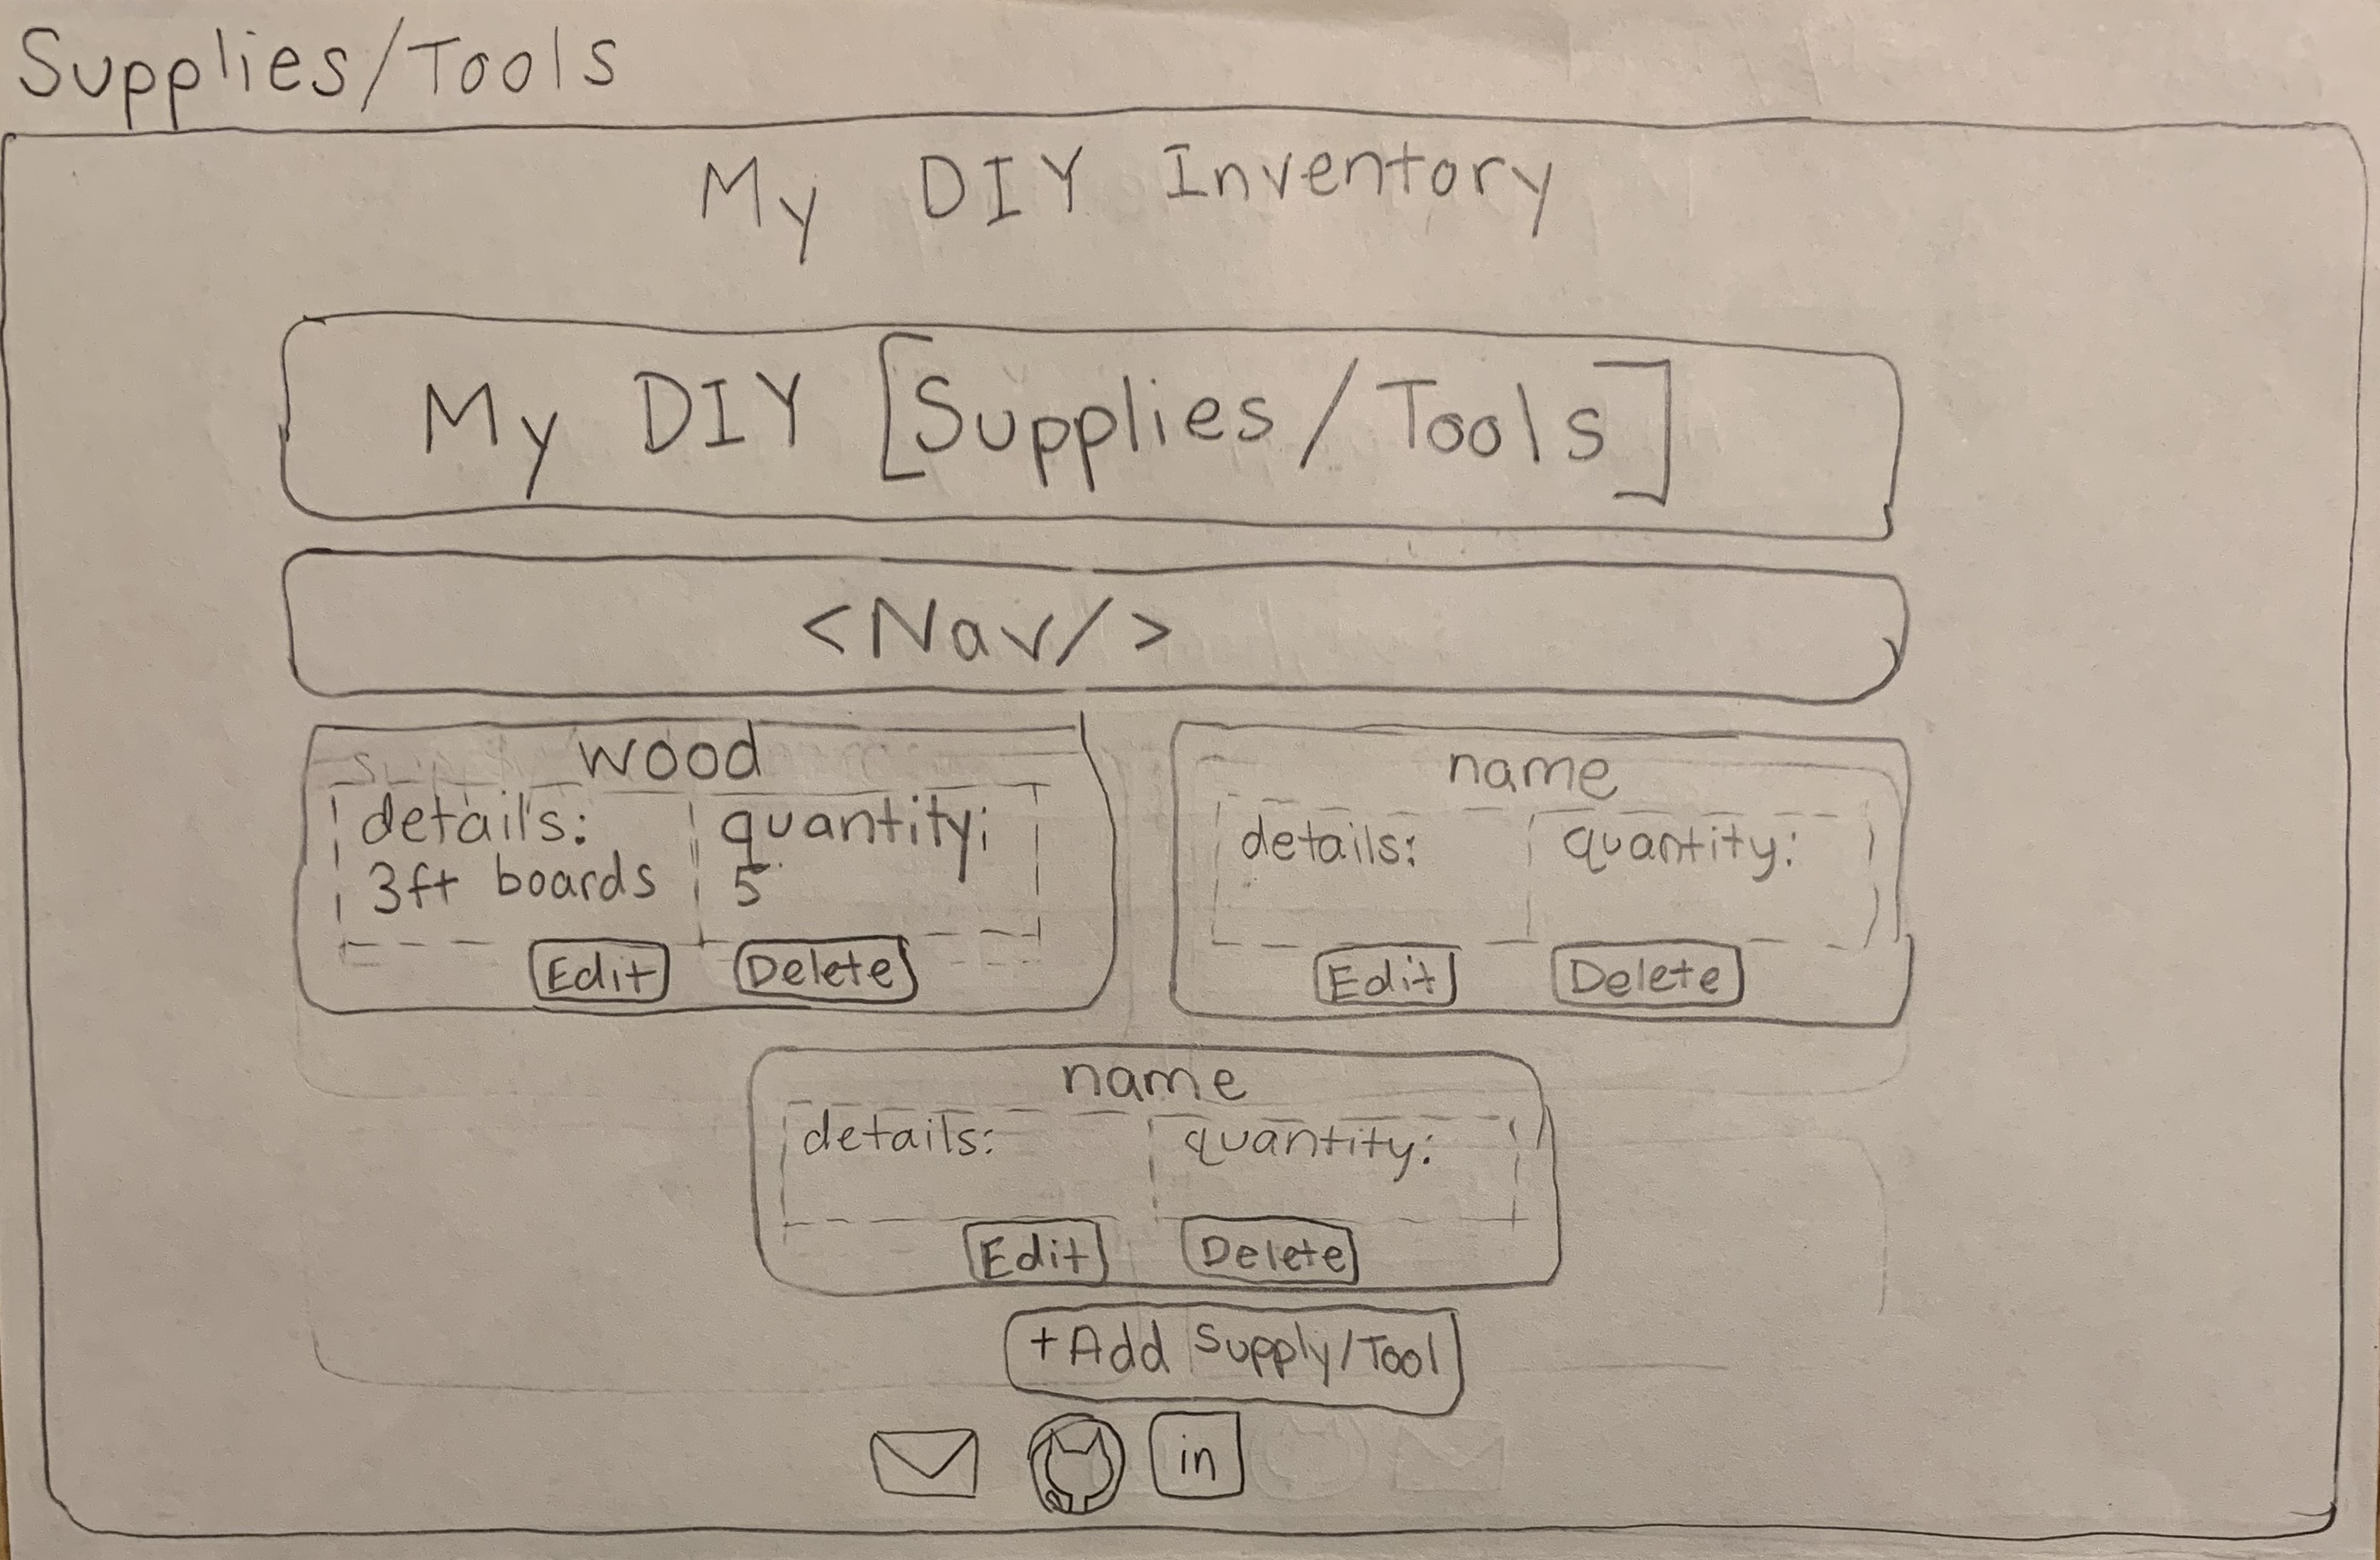 Supplies/Tools
My DIY Inventory
My DIY [Supplies/Tools]
<Nav/>
wood
details:
quantity:
3ft boards
5
Edit
Delete
name
details:
quantity:
Edit
Delete
name
details:
quantity:
Edit
Delete
+Add Supply/Tool
in